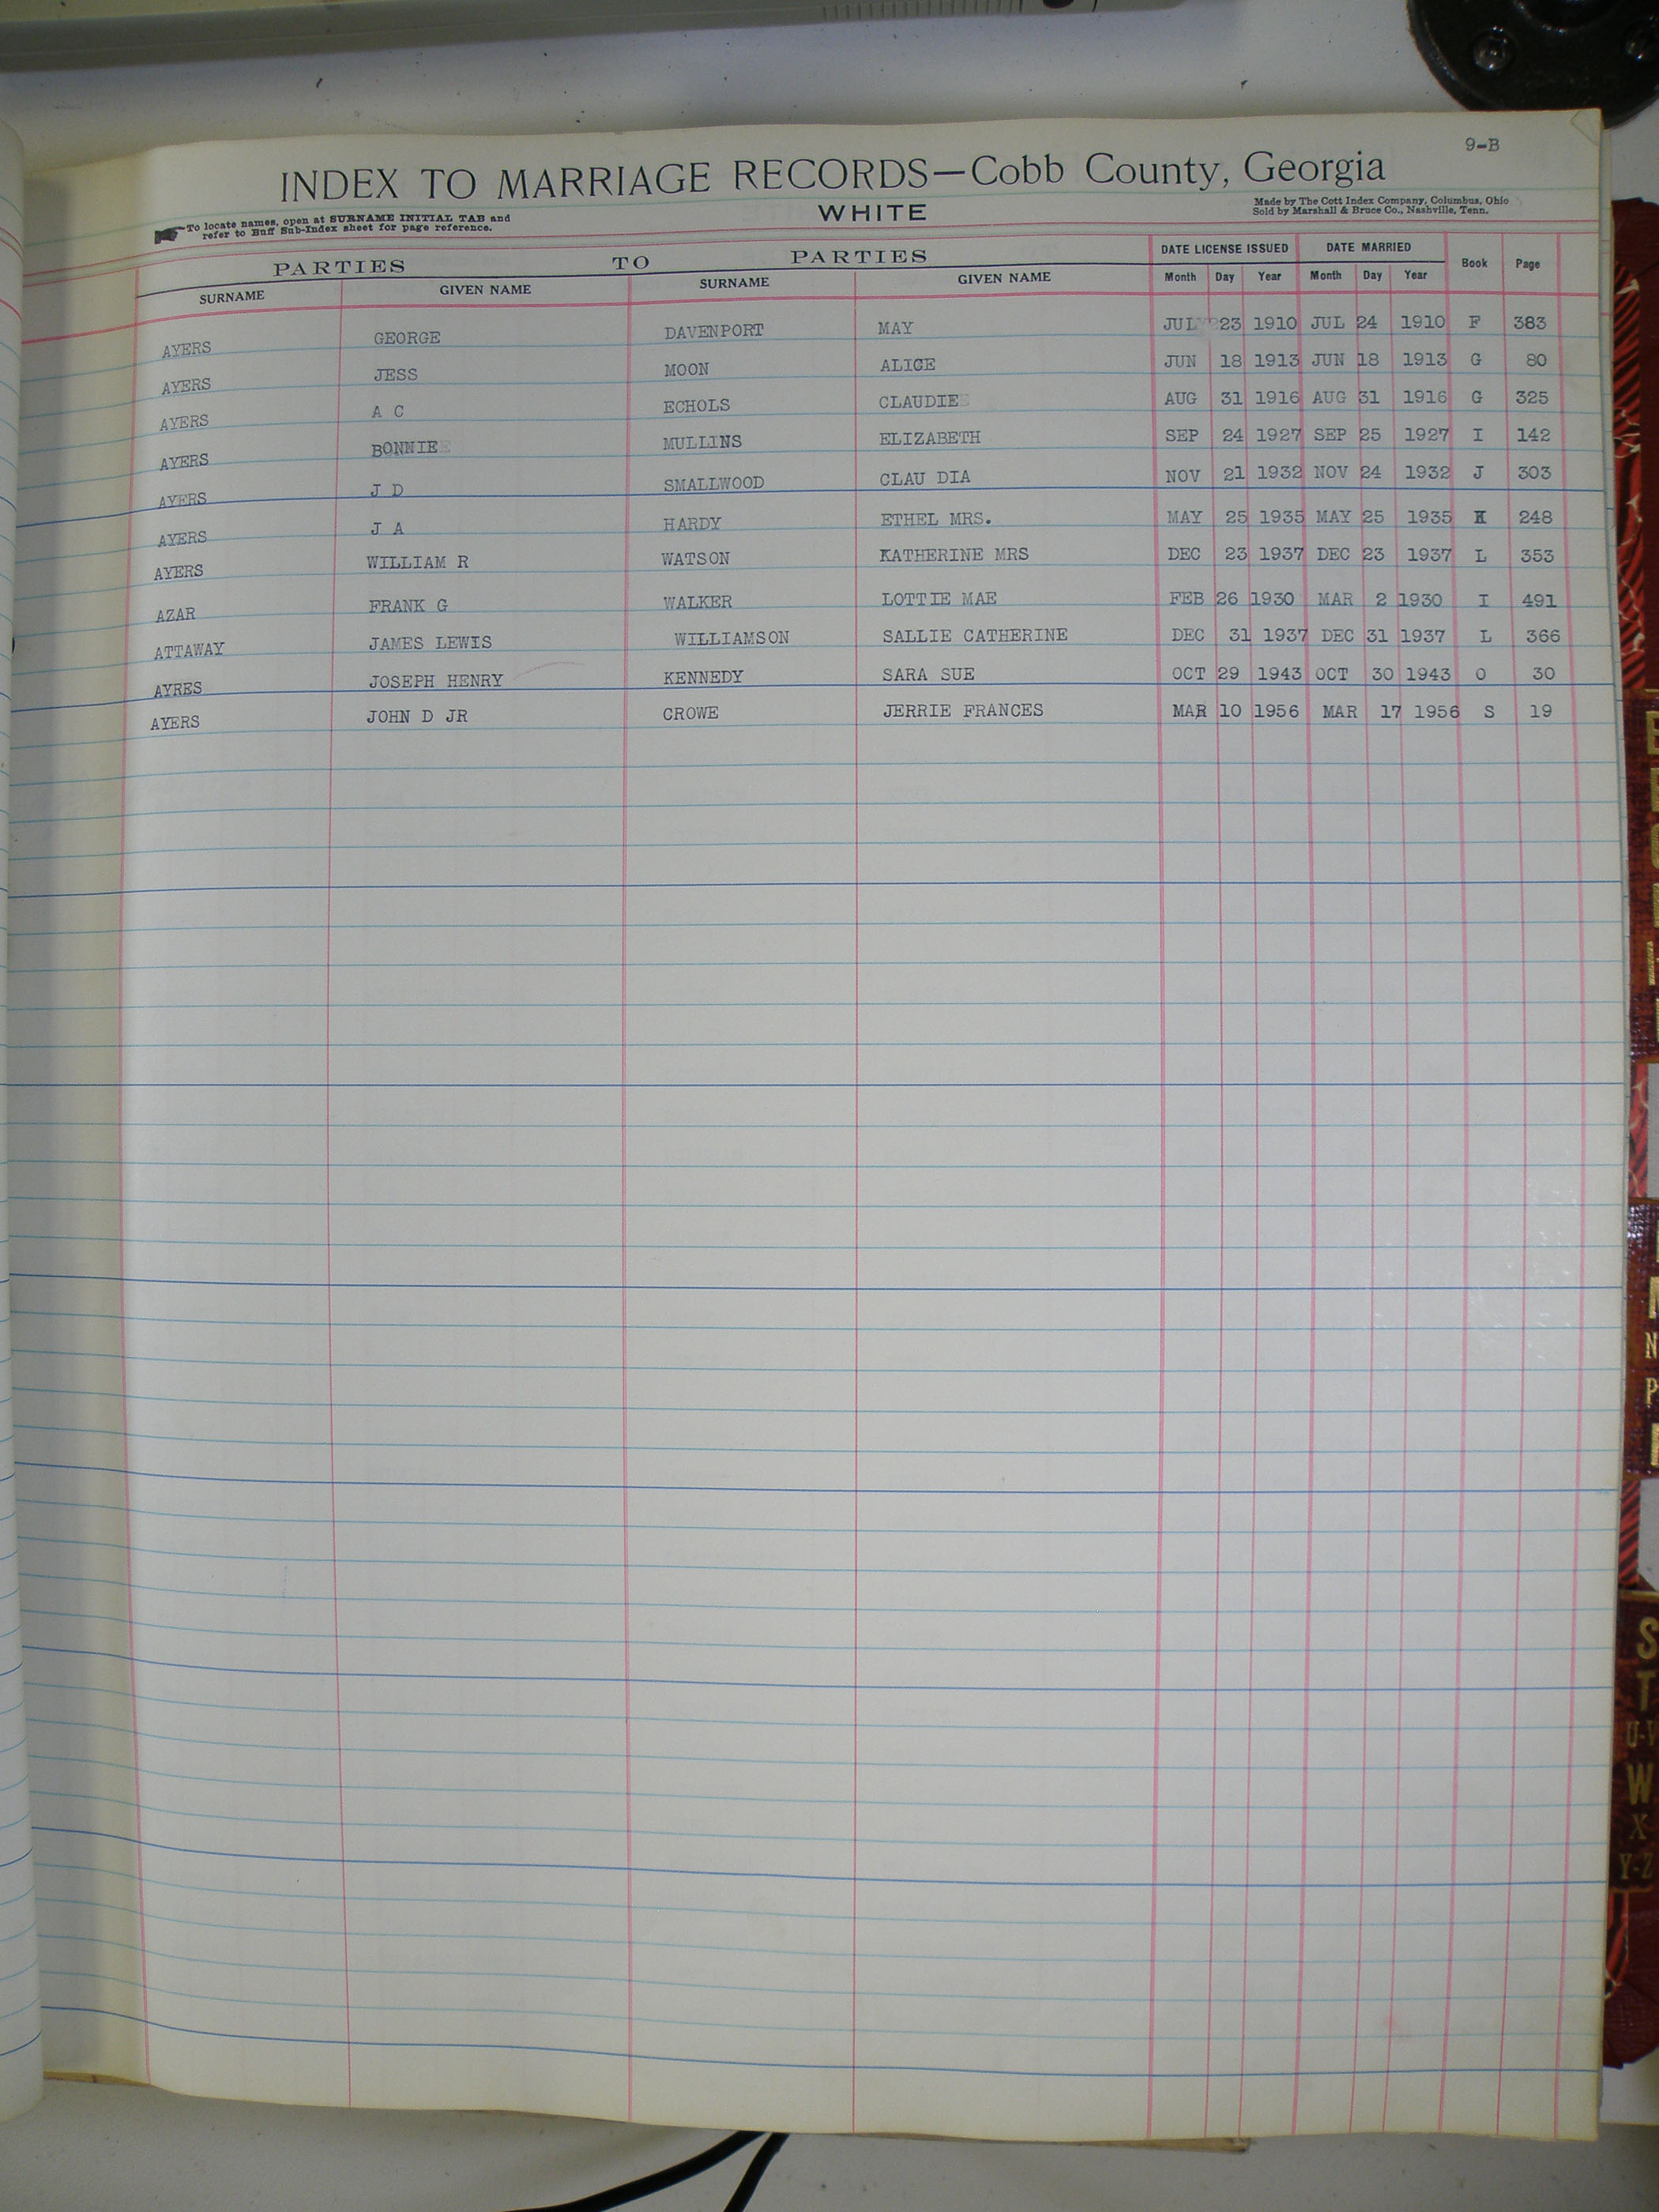 9-B
INDEX TO MARRIAGE RECORDS—Cobb County, Georgia
WHITE
To locate names, open at SURNAME INITIAL TAB and
refer to Buff Sub-Index sheet for page reference.
Made by The Cott Index Company, Columbus, Ohio
Sold by Marshall & Bruce Co., Nashville, Tenn.
PARTIES TO PARTIES DATE LICENSE ISSUED DATE MARRIED Book Page
SURNAME GIVEN NAME SURNAME GIVEN NAME Month Day Year Month Day Year
AYERS GEORGE DAVENPORT MAY JUL 23 1910 JUL 24 1910 F 383
AYERS JESS MOON ALICE JUN 18 1913 JUN 18 1913 G 80
AYERS A C ECHOLS CLAUDIE AUG 31 1916 AUG 31 1916 G 325
AYERS BONNIE MULLINS ELIZABETH SEP 24 1927 SEP 25 1927 I 142
AYERS J D SMALLWOOD CLAU DIA NOV 21 1932 NOV 24 1932 J 303
AYERS J A HARDY ETHEL MRS. MAY 25 1935 MAY 25 1935 K 248
AYERS WILLIAM R WATSON KATHERINE MRS DEC 23 1937 DEC 23 1937 L 353
AZAR FRANK G WALKER LOTTIE MAE FEB 26 1930 MAR 2 1930 I 491
ATTAWAY JAMES LEWIS WILLIAMSON SALLIE CATHERINE DEC 31 1937 DEC 31 1937 L 366
AYRES JOSEPH HENRY KENNEDY SARA SUE OCT 29 1943 OCT 30 1943 O 30
AYERS JOHN D JR CROWE JERRIE FRANCES MAR 10 1956 MAR 17 1956 S 19
N
P
S
T
U-V
W
X
Y-Z